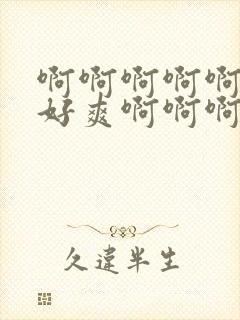 啊啊啊啊啊
好爽啊啊啊
久違半生